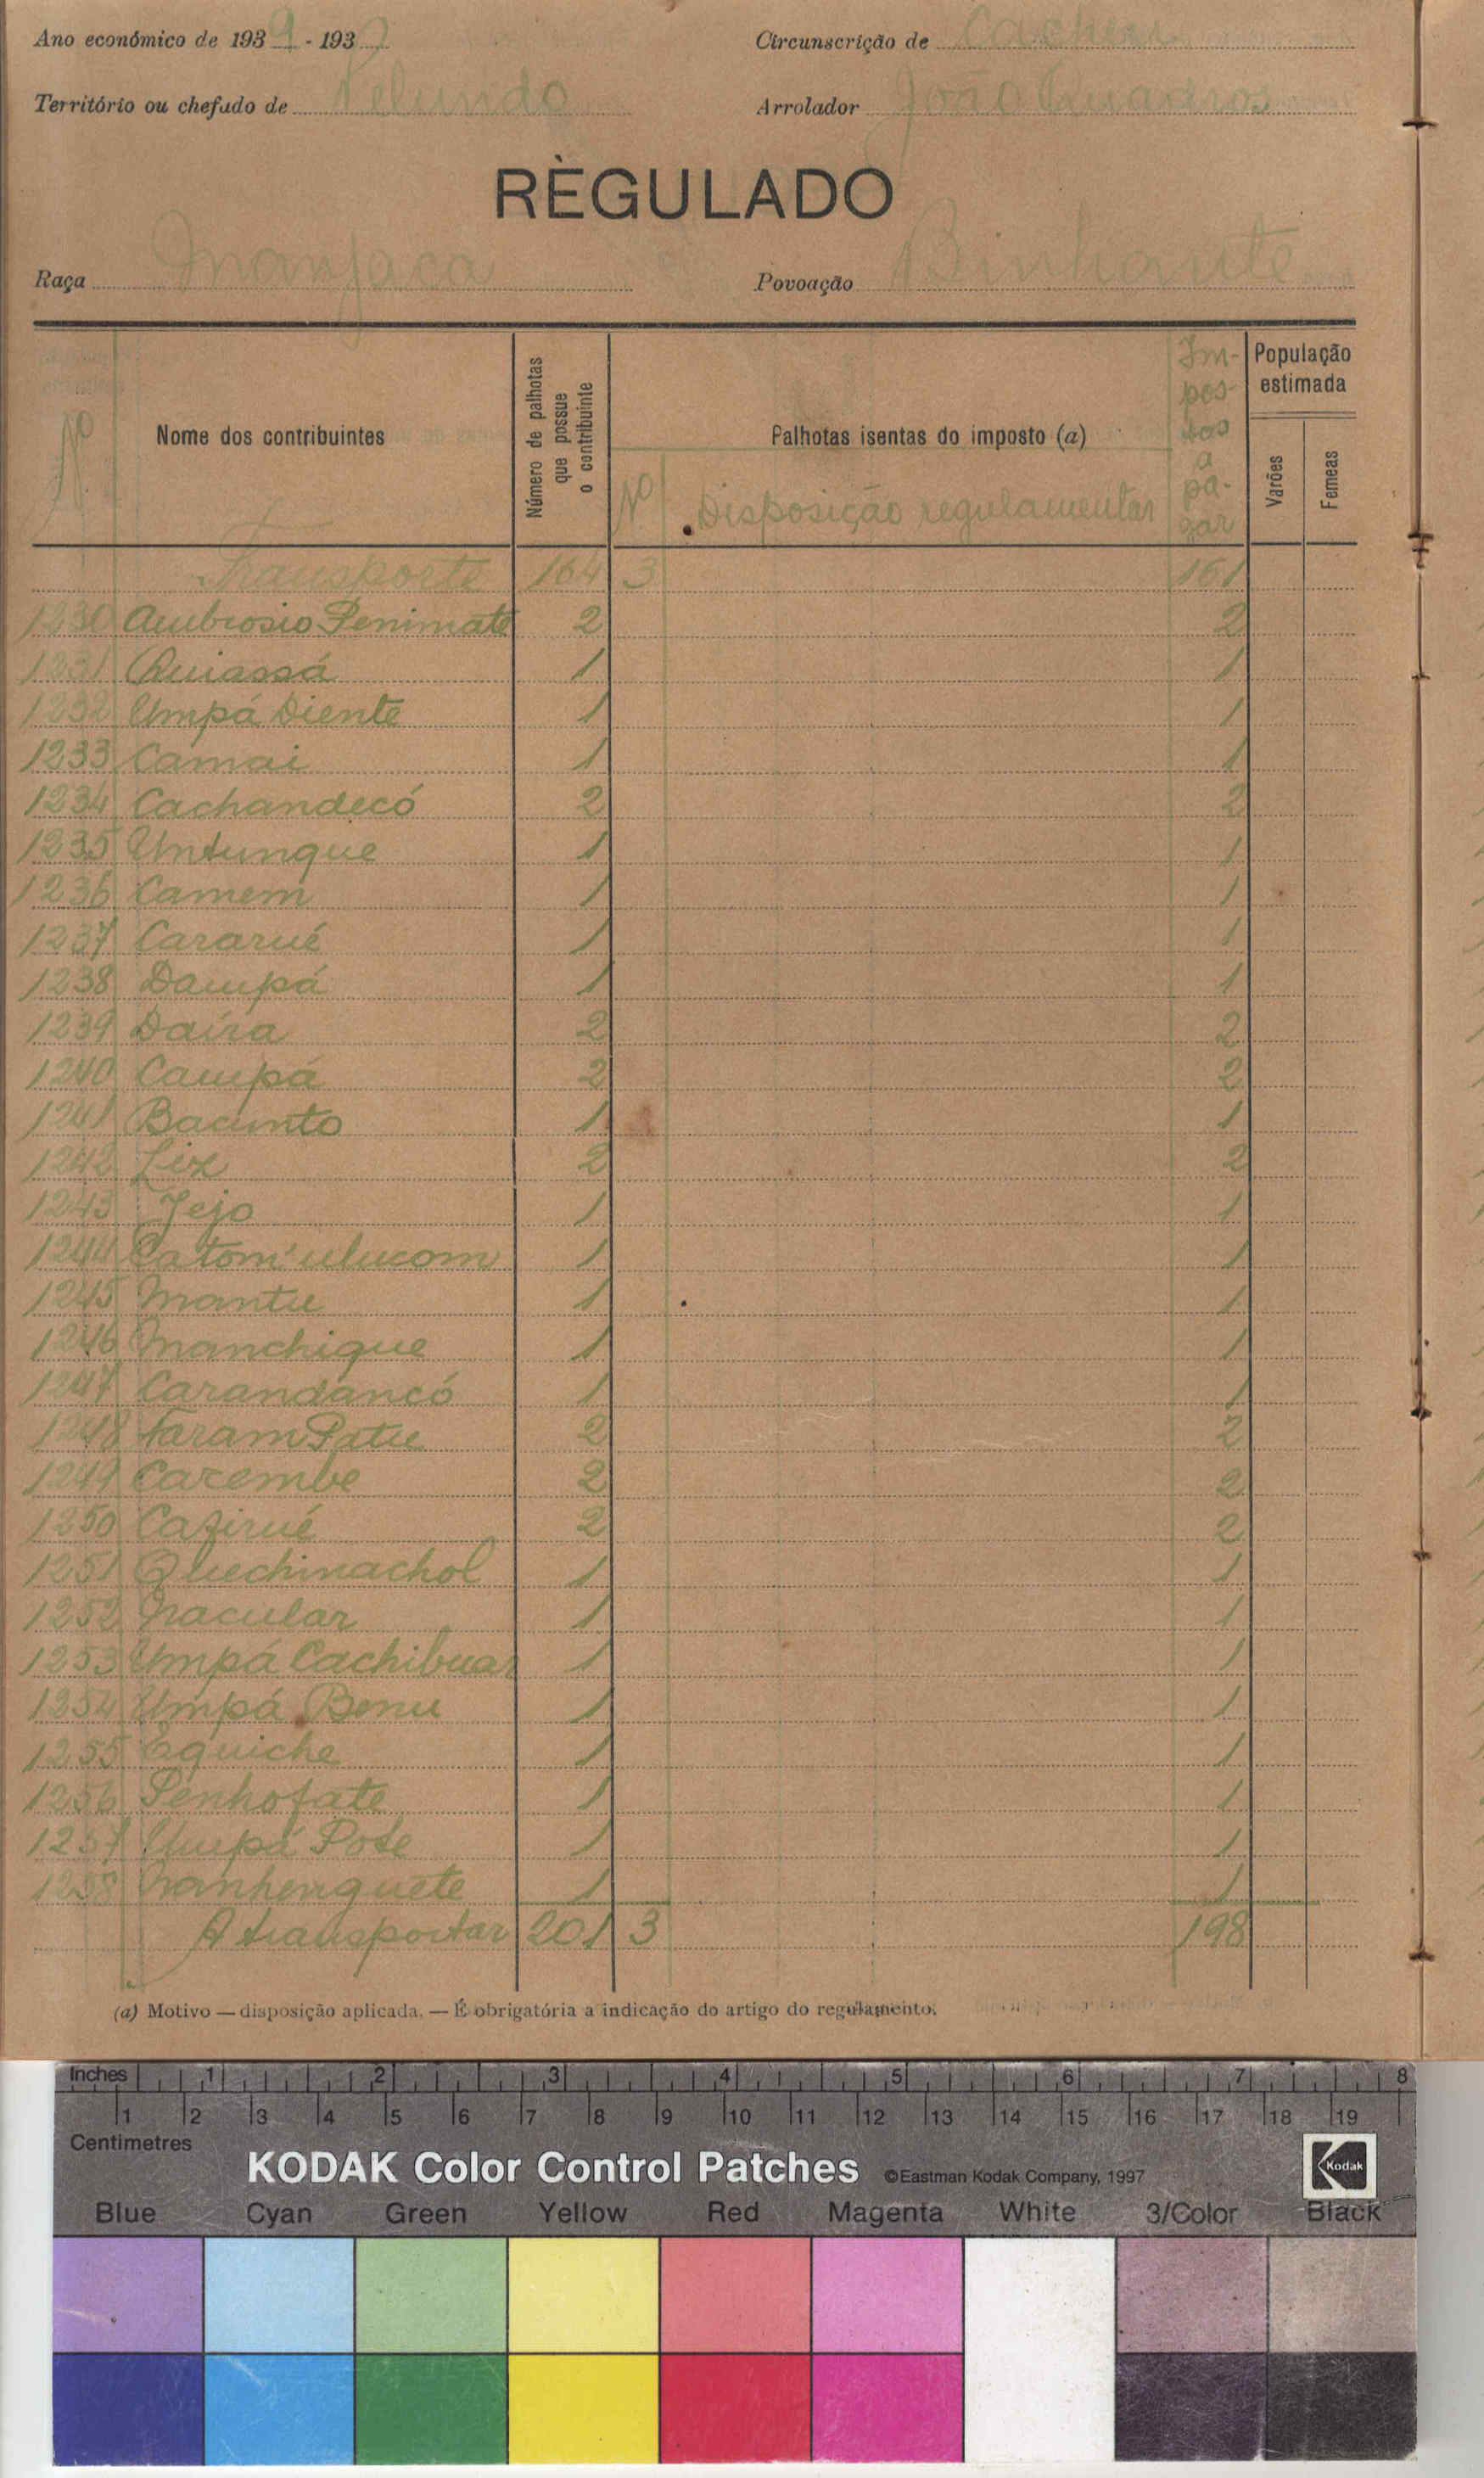 Ano económico de 1939 - 193
Circunscrição de Cacheu
Território ou chefado de Pelundo
Arrolador João Quadros
RÈGULADO
Raça Manjaca
Povoação Binhante
Nº
Nome dos contribuintes
Número de palhotas que possue o contribuinte
Palhotas isentas do imposto (a)
Nº Disposição regulamentar
Impostos a pagar
População estimada
Varões
Femeas
Transporte 164 3 161
1230 Ambrosio Penimate 2 2
1231 Quiassá 1 1
1232 Umpá Diente 1 1
1233 Camai 1 1
1234 Cachandecó 2 2
1235 Untunque 1 1
1236 Camem 1 1
1237 Cararué 1 1
1238 Dampá 1 1
1239 Daira 2 2
1240 Campá 2 2
1241 Bacinto 1 1
1242 Liz 2 2
1243 Jejo 1 1
1244 Catom'ulucom 1 1
1245 Mantu 1 1
1246 Manchique 1 1
1247 Carandancó 1 1
1248 Faram Patu 2 2
1249 Carembe 2 2
1250 Cafirué 2 2
1251 Quechinachol 1 1
1252 Nacular 1 1
1253 Umpá Cachibuar 1 1
1254 Umpá Bonu 1 1
1255 Eguiche 1 1
1256 Penhofate 1 1
1257 Umpá Pote 1 1
1258 Nanhenguete 1 1
A transportar 201 3 198
(a) Motivo — disposição aplicada. — É obrigatória a indicação do artigo do regulamento.
Inches 1 2 3 4 5 6 7 8
1 2 3 4 5 6 7 8 9 10 11 12 13 14 15 16 17 18 19
Centimetres
KODAK Color Control Patches ©Eastman Kodak Company, 1997 Kodak
Blue Cyan Green Yellow Red Magenta White 3/Color Black